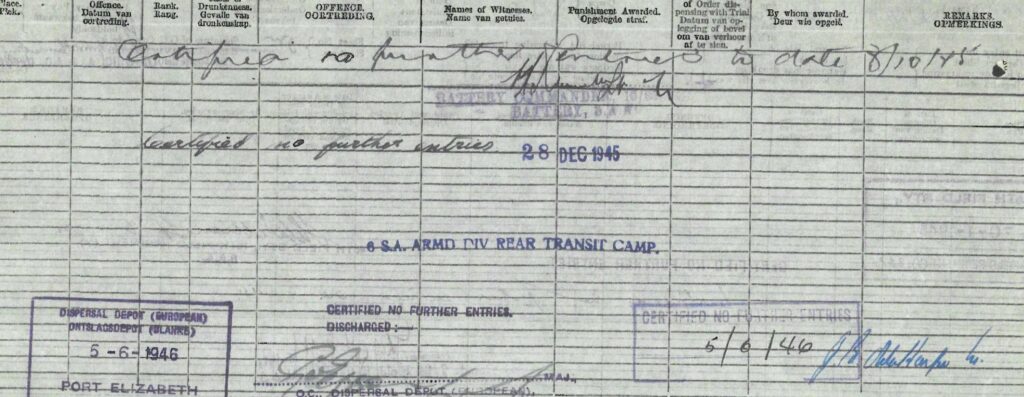 Place. Plek.
Offence. Datum van oortreding.
Rank. Rang.
Drunkenness. Gevalle van dronkenskap.
OFFENCE. OORTREDING.
Names of Witnesses. Name van getuies.
Punishment Awarded. Opgelegde straf.
of Order dispensing with Trial Datum van oplegging of bevel om van verhoor af te sien.
By whom awarded. Deur wie opgelê.
REMARKS. OPMERKINGS.
Certified no further Entries to date 8/10/45
BATTERY COMMANDER
BATTERY, S.A
Certified no further entries 28 DEC 1945
6 S.A. ARMD DIV REAR TRANSIT CAMP.
DISPERSAL DEPOT (EUROPEAN)
ONTSLAGDEPOT (BLANKE)
5-6-1946
PORT ELIZABETH
CERTIFIED NO FURTHER ENTRIES.
DISCHARGED:—
MAJ.,
O.C., DISPERSAL DEPOT, (EUROPEAN),
CERTIFIED NO FURTHER ENTRIES
5/6/46